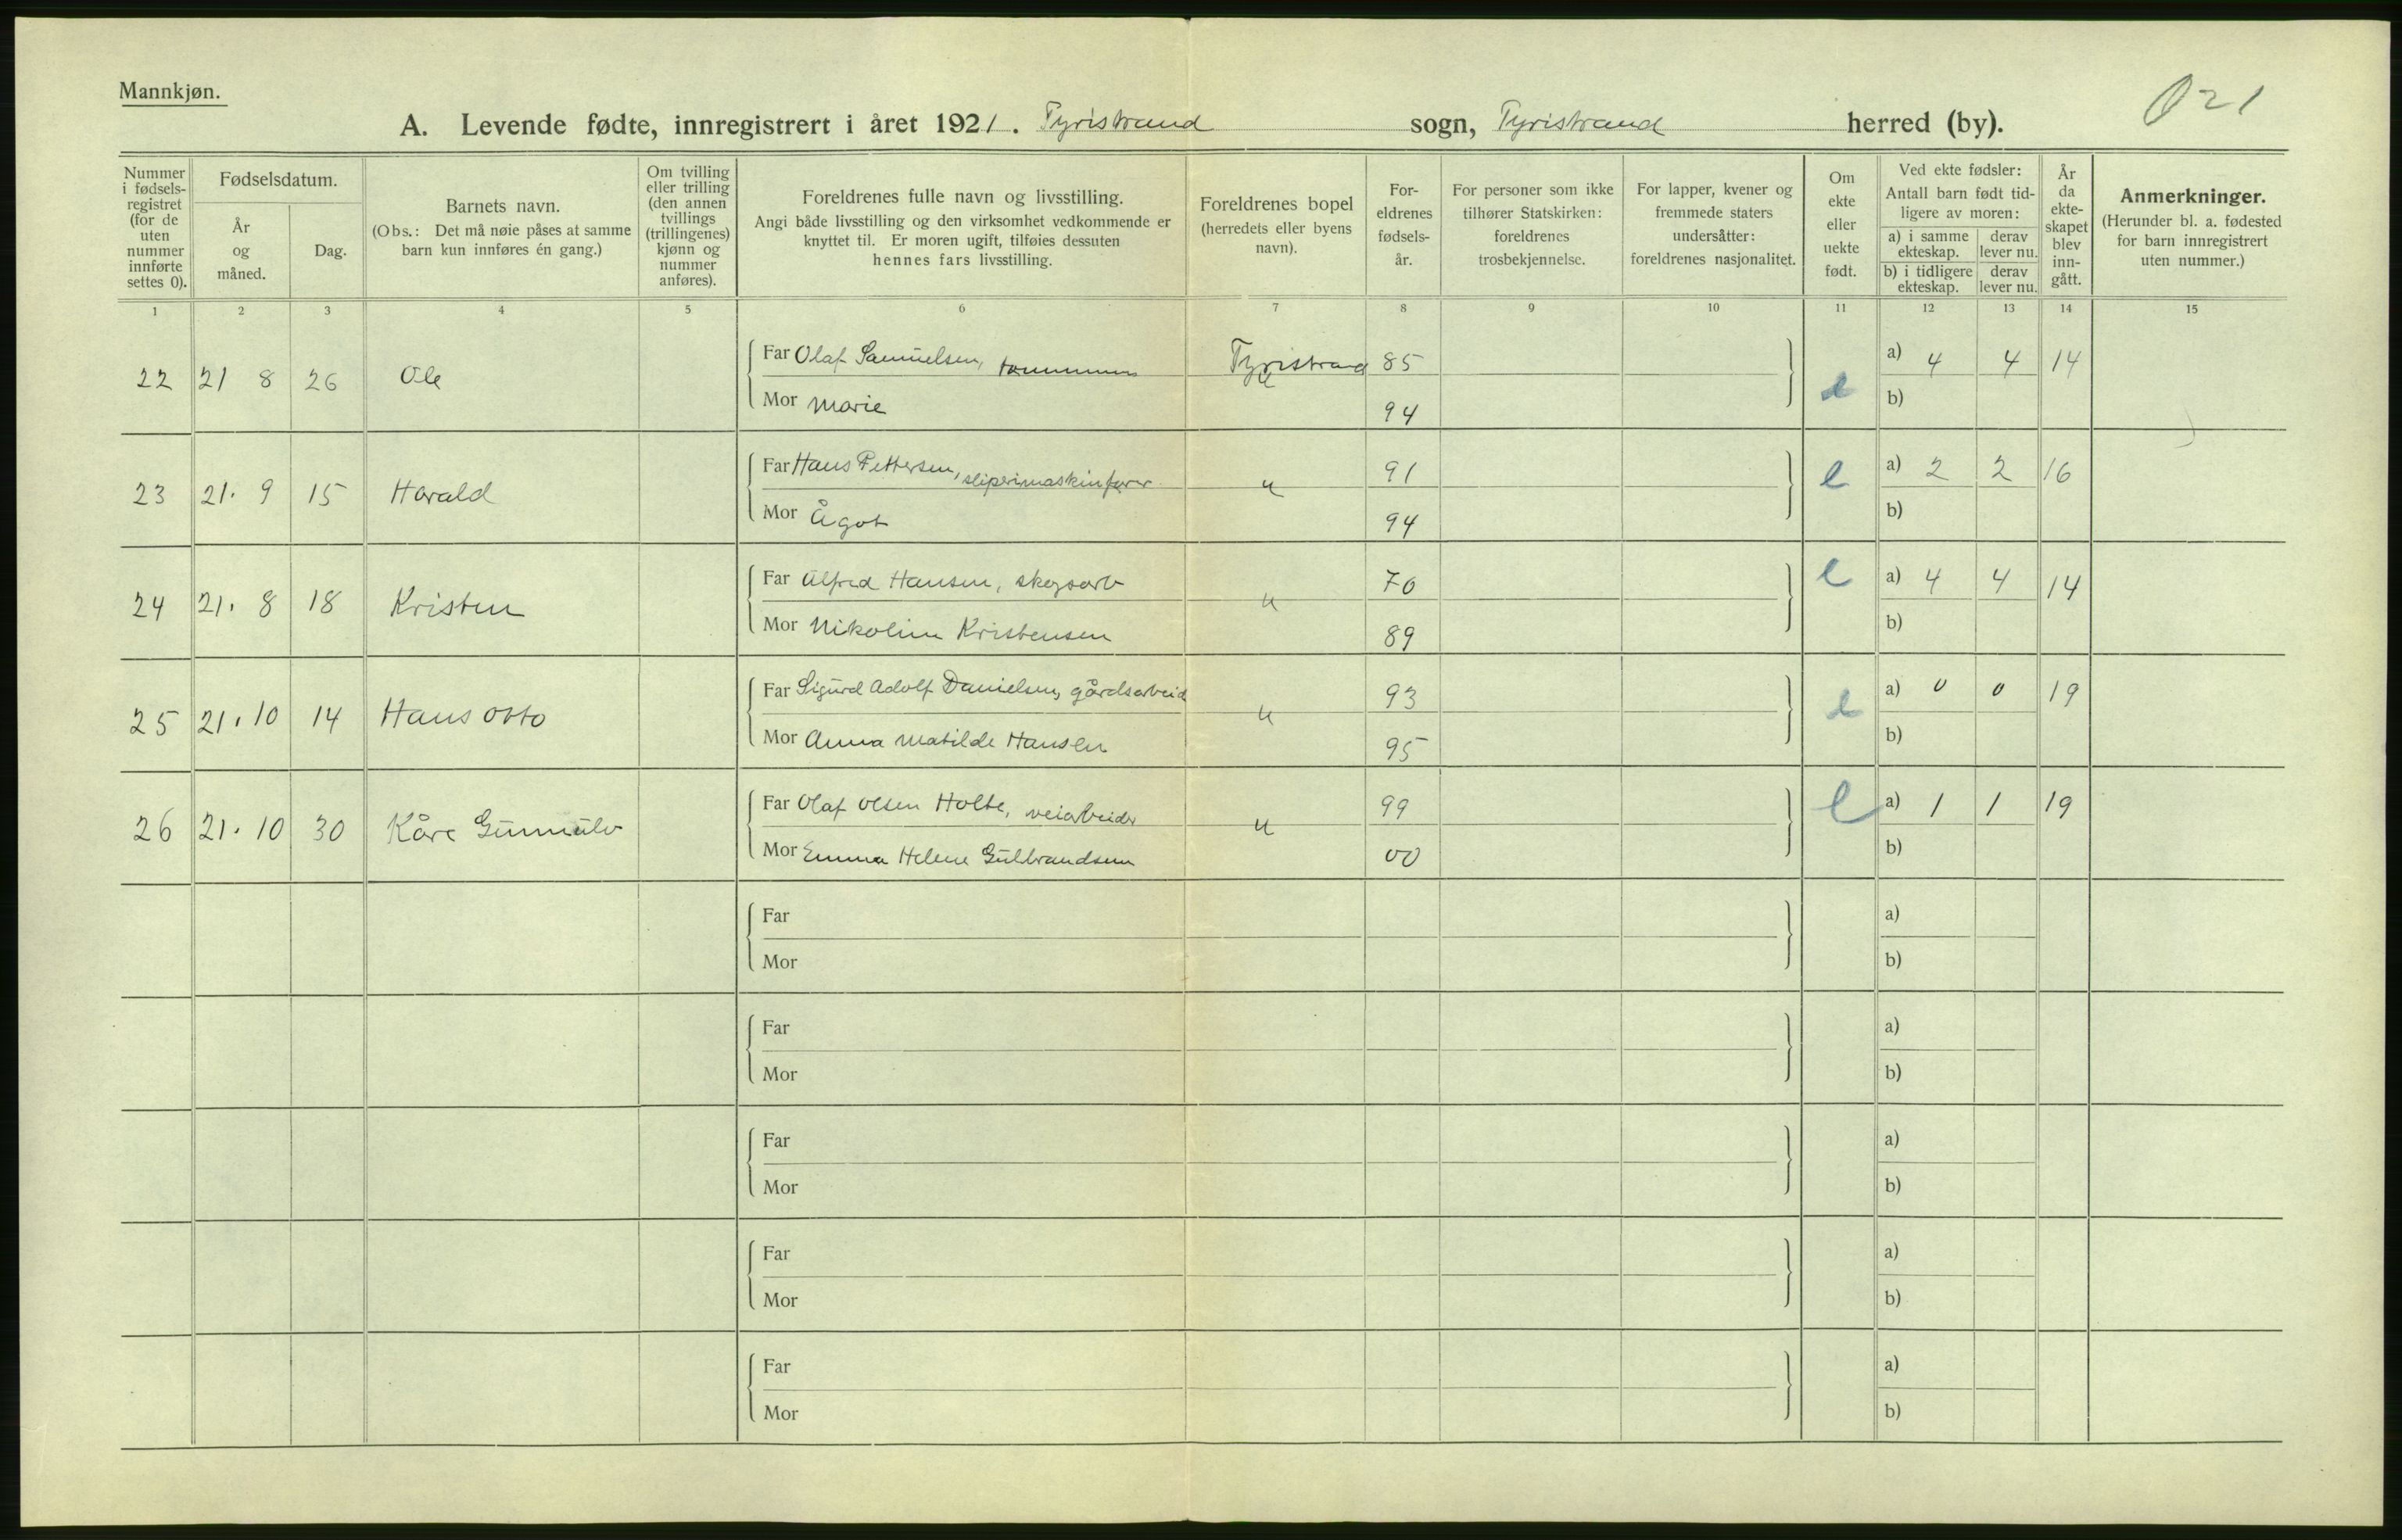 Mannkjøn.
021
A. Levende fødte, innregistrert i året 1921. Tyristrand sogn, Tyristrand herred (by).
Nummer i fødsels-registret (for de uten nummer innførte settes 0).
Fødselsdatum.
År og måned.
Dag.
Barnets navn.
(Obs.: Det må nøie påses at samme barn kun innføres én gang.)
Om tvilling eller trilling (den annen tvillings (trillingenes) kjønn og nummer anføres).
Foreldrenes fulle navn og livsstilling.
Angi både livsstilling og den virksomhet vedkommende er knyttet til. Er moren ugift, tilføies dessuten hennes fars livsstilling.
Foreldrenes bopel (herredets eller byens navn).
For-eldrenes fødsels-år.
For personer som ikke tilhører Statskirken: foreldrenes trosbekjennelse.
For lapper, kvener og fremmede staters undersåtter: foreldrenes nasjonalitet.
Om ekte eller uekte født.
Ved ekte fødsler: Antall barn født tid-ligere av moren:
a) i samme ekteskap. derav lever nu.
b) i tidligere ekteskap. derav lever nu.
År da ekte-skapet blev inn-gått.
Anmerkninger.
(Herunder bl. a. fødested for barn innregistrert uten nummer.)
1 2 3 4 5 6 7 8 9 10 11 12 13 14 15
22 21 8 26 Ole Far Olaf Samuelsen, Tyristrand 85 e a) 4 4 14
Mor Marie 94 b)
23 21. 9 15 Harald Far Hans Pettersen, sliperimaskinfører " 91 e a) 2 2 16
Mor Ågot 94 b)
24 21. 8 18 Kristen Far Alfred Hansen, skogsarb " 70 e a) 4 4 14
Mor Nikoline Kristensen 89 b)
25 21. 10 14 Hans Otto Far Sigurd Adolf Danielsen, gårdsarbeid " 93 e a) 0 0 19
Mor Anna Matilde Hansen 95 b)
26 21. 10 30 Kåre Gunnulv Far Olaf Olsen Holte, veiarbeider " 99 e a) 1 1 19
Mor Emma Helene Gulbrandsen 00 b)
Far a)
Mor b)
Far a)
Mor b)
Far a)
Mor b)
Far a)
Mor b)
Far a)
Mor b)